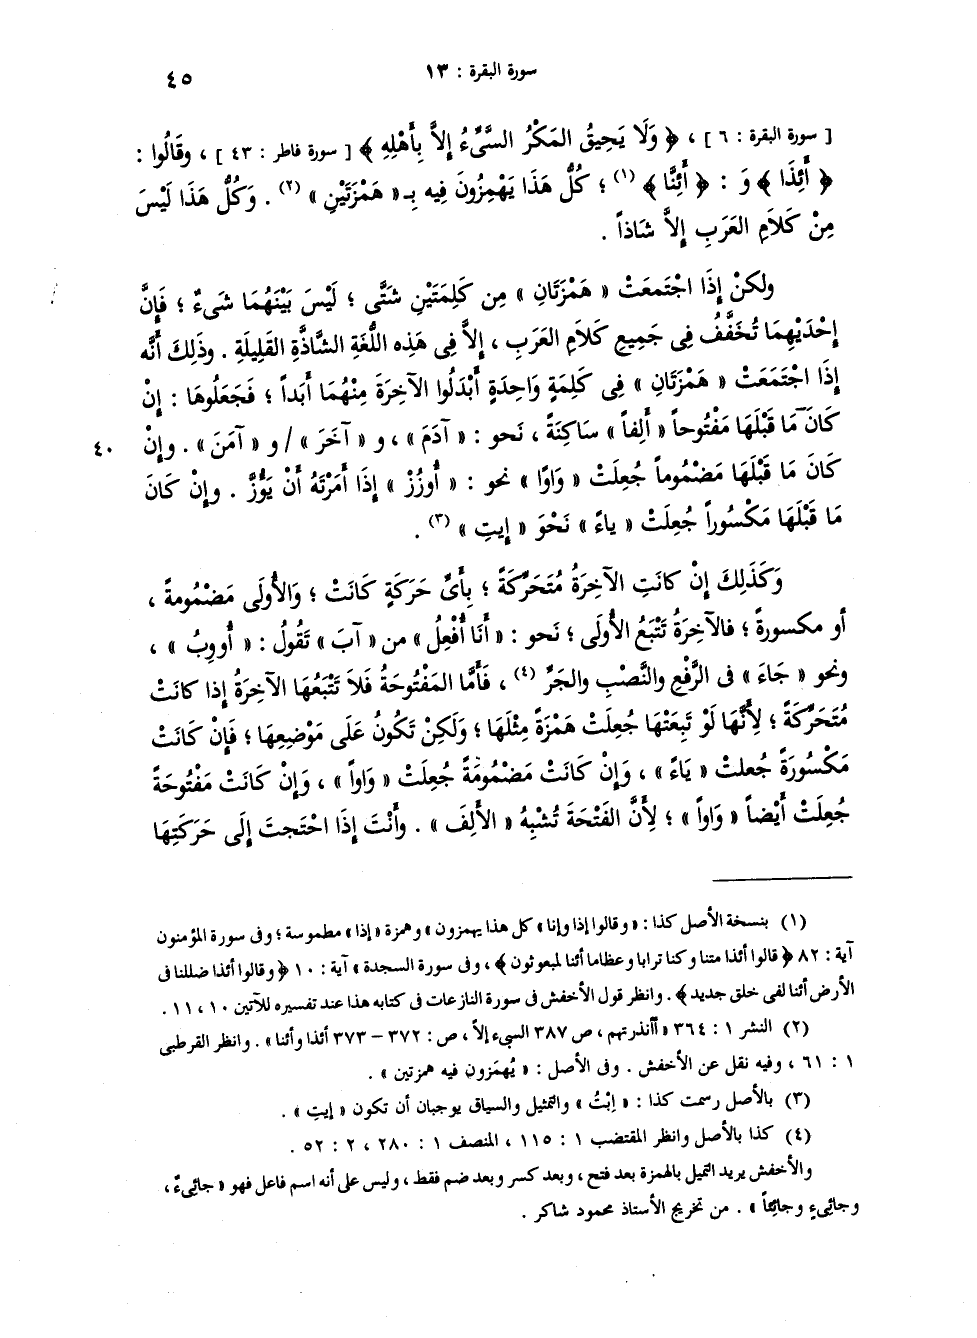 سورة البقرة : ١٣
٤٥
[ سورة البقرة : ٦ ] ، ﴿ وَلَا يَحِيقُ المَكْرُ السَّيِّءُ إِلاَّ بِأَهْلِهِ ﴾ [ سورة فاطر : ٤٣ ] ، وقَالُوا :
﴿ أَئِذَا ﴾ وَ : ﴿ أَئِنَّا ﴾ (١) ؛ كُلُّ هَذَا يَهْمِزُونَ فِيه بِـ « هَمْزَتَيْنِ » (٢) . وَكُلُّ هَذَا لَيْسَ
مِنْ كَلَامِ العَرَبِ إِلاَّ شَاذاً .
ولكنْ إِذَا اجْتَمعَتْ « هَمْزَتَانِ » مِن كَلِمَتَيْنِ شَتَّى ؛ لَيْسَ بَيْنَهُمَا شَىءٌ ؛ فَإِنَّ
إِحْدَيْهِمَا تُخَفَّفُ فِى جَمِيعِ كَلَامِ العَرَبِ ، إِلاَّ فِى هَذِه اللُّغَةِ الشَّاذَّةِ القَلِيلَةِ . وذَلِكَ أَنَّه
إِذَا اجْتَمَعَتْ « هَمْزَتَانِ » فِى كَلِمَةٍ وَاحِدَةٍ أَبْدَلُوا الآخِرَةَ مِنْهُمَا أَبَداً ؛ فَجَعَلُوهَا : إِنْ
كَانَ مَا قَبْلَهَا مَفْتُوحاً « أَلِفاً » سَاكِنَةً ، نَحو : « آدَمَ » ، و « آخَرَ » / و « آمَنَ » . وإِنْ
٤٠
كَانَ مَا قَبْلَهَا مَضْمُوماً جُعِلَتْ « وَاوًا » نحو : « أُوزُزْ » إِذَا أَمَرْتَهُ أَنْ يَؤُزَّ . وإِنْ كَانَ
مَا قَبْلَهَا مَكْسُوراً جُعِلَتْ « ياءً » نَحْوَ « إِيتِ » (٣) .
وَكَذَلِكَ إِنْ كَانَتِ الآخِرَةُ مُتَحَرِّكَةً ؛ بِأَىِّ حَرَكَةٍ كَانَتْ ؛ وَالأُولَى مَضْمُومةً ،
أو مكسورةً ؛ فالآخِرَةُ تَتْبَعُ الأُولَى ؛ نَحو : « أَنَا أُفْعِلُ » من « آبَ » تَقُولُ : « أُووِبُ » ،
ونحو « جَاءَ » فى الرَّفْعِ والنَّصْبِ والجَرِّ (٤) ، فَأَمَّا المَفْتُوحَةُ فَلاَ تَتْبَعُهَا الآخِرَةُ إِذا كانَتْ
مُتَحَرِّكَةً ؛ لِأَنَّهَا لَوْ تَبِعَتْهَا جُعِلَتْ هَمْزَةً مِثْلَهَا ؛ وَلَكِنْ تَكُونُ عَلَى مَوْضِعِهَا ؛ فَإِنْ كَانَتْ
مَكْسُورَةً جُعلتْ « يَاءً » ، وَإِنْ كَانَتْ مَضْمُومَةً جُعِلَتْ « وَاواً » ، وَإِنْ كَانَتْ مَفْتُوحَةً
جُعِلَتْ أَيْضاً « وَاواً » ؛ لِأَنَّ الفَتْحَةَ تُشْبِهُ « الأَلِفَ » . وأَنْتَ إِذَا احْتَجتَ إِلَى حَرَكَتِهَا
(١) بنسخة الأصل كذا : « وقالوا إذا وإنا » كل هذا يهمزون » وهمزة « إذا » مطموسة ؛ وفى سورة المؤمنون
آية : ٨٢ ﴿ قالوا أئذا متنا وكنا ترابا وعظاما أئنا لمبعوثون ﴾ ، وفى سورة السجدة » آية : ١٠ ﴿ وقالوا أئذا ضللنا فى
الأرض أئنا لفى خلق جديد ﴾ . وانظر قول الأخفش فى سورة النازعات فى كتابه هذا عند تفسيره للآتين ١٠ ، ١١ .
(٢) النشر ١ : ٣٦٤ « أأنذرتهم ، ص ٣٨٧ السيىء إلاّ ، ص : ٣٧٢ – ٣٧٣ أئذا وأئنا » . وانظر القرطبى
١ : ٦١ ، وفيه نقل عن الأخفش . وفى الأصل : « يُهمَزون فيه همزتين » .
(٣) بالأصل رسمت كذا : « اِبْتُ » والتمثيل والسياق يوجبان أن تكون « إيتِ » .
(٤) كذا بالأصل وانظر المقتضب ١ : ١١٥ ، المنصف ١ : ٢٨٠ ، ٢ : ٥٢ .
والأخفش يريد التميل بالهمزة بعد فتح ، وبعد كسر وبعد ضم فقط ، وليس على أنه اسم فاعل فهو « جائِىءٌ ،
وجائِىءٍ وجائِئاً » . من تخريج الأستاذ محمود شاكر .